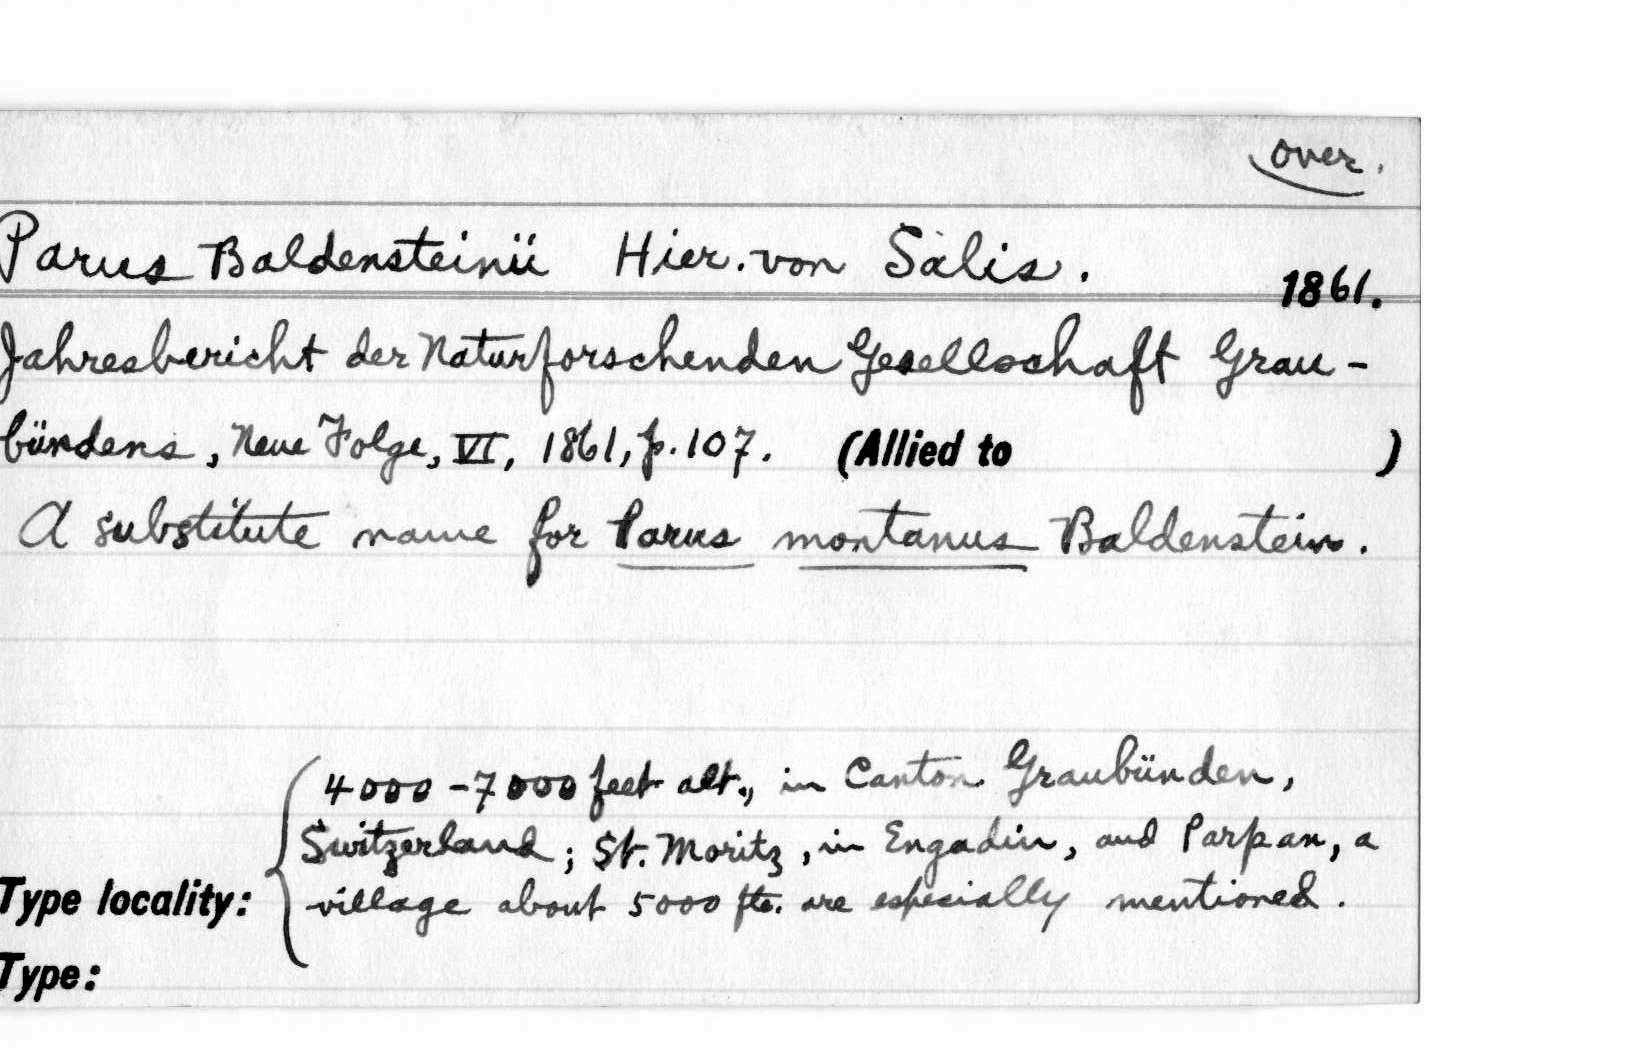 over.
Parus Baldensteinii Hier. von Salis. 1861.
Jahresbericht der Naturforschenden Gesellschaft Grau-
bündens, Neue Folge, VI, 1861, p. 107. (Allied to )
A substitute name for Parus montanus Baldenstein.
4000-7000 feet alt., in Canton Graubünden,
Switzerland; St. Moritz, in Engadin, and Parpan, a
Type locality: village about 5000 ft. are especially mentioned.
Type: